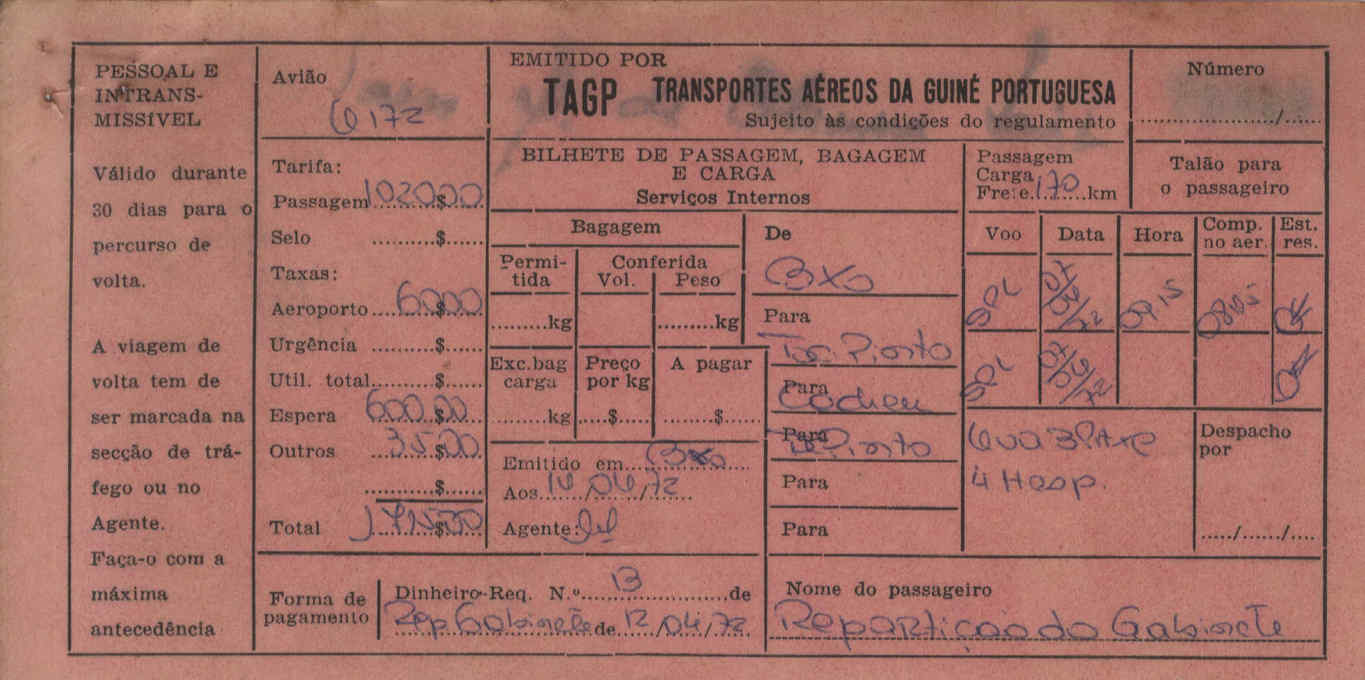 PESSOAL E
INTRANS-
MISSÍVEL
Válido durante
30 dias para o
percurso de
volta.
A viagem de
volta tem de
ser marcada na
secção de trá-
fego ou no
Agente.
Faça-o com a
máxima
antecedência
Avião
6172
Tarifa:
Passagem 1.020$00
Selo ..........$......
Taxas:
Aeroporto 60$00
Urgência ..........$......
Util. total..........$......
Espera 600$00
Outros 35$00
..........$......
Total 1.715$00
EMITIDO POR
TAGP TRANSPORTES AÉREOS DA GUINÉ PORTUGUESA
Sujeito às condições do regulamento
BILHETE DE PASSAGEM, BAGAGEM
E CARGA
Serviços Internos
Bagagem
Permi-
tida
Conferida
Vol. Peso
.........kg .........kg
Exc.bag
carga
Preço
por kg
A pagar
.........kg .....$..... ........$......
Emitido em Bxo
Aos 14/04/72
Agente:
De
Bxo
Para
T. Pinto
Para
Cacheu
Para
T. Pinto
Para
Para
Número
................../......
Passagem
Carga
Frete 170 km
Talão para
o passageiro
Voo Data Hora Comp.
no aer. Est.
res.
SPL 07/07/72 0915 0805 OK
SPL 07/07/72 OK
4 Hesp.
Despacho
por
...../....../....
Forma de
pagamento
Dinheiro-Req. N.º 13 de
Rep Gabinete de 12/04/72
Nome do passageiro
Repartição do Gabinete